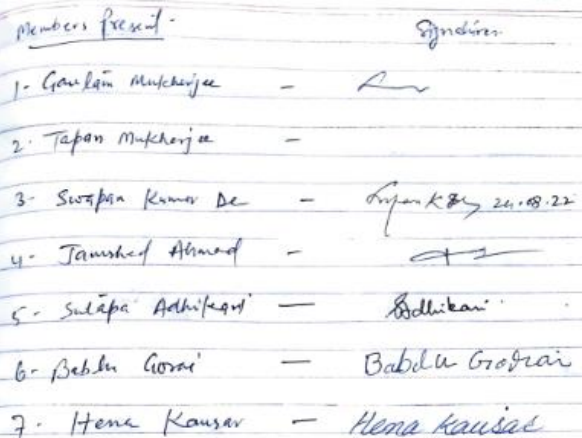 Members Present - Signatures
1- Gautam Mukherjee -
2. Tapan Mukherjee -
3- Swapan Kumar De - 24.08.22
4- Jamshed Ahmad -
5- Sutapa Adhikari — SAdhikari
6- Bablu Gorai — Bablu Gorai
7. Hena Kausar — Hena Kausar